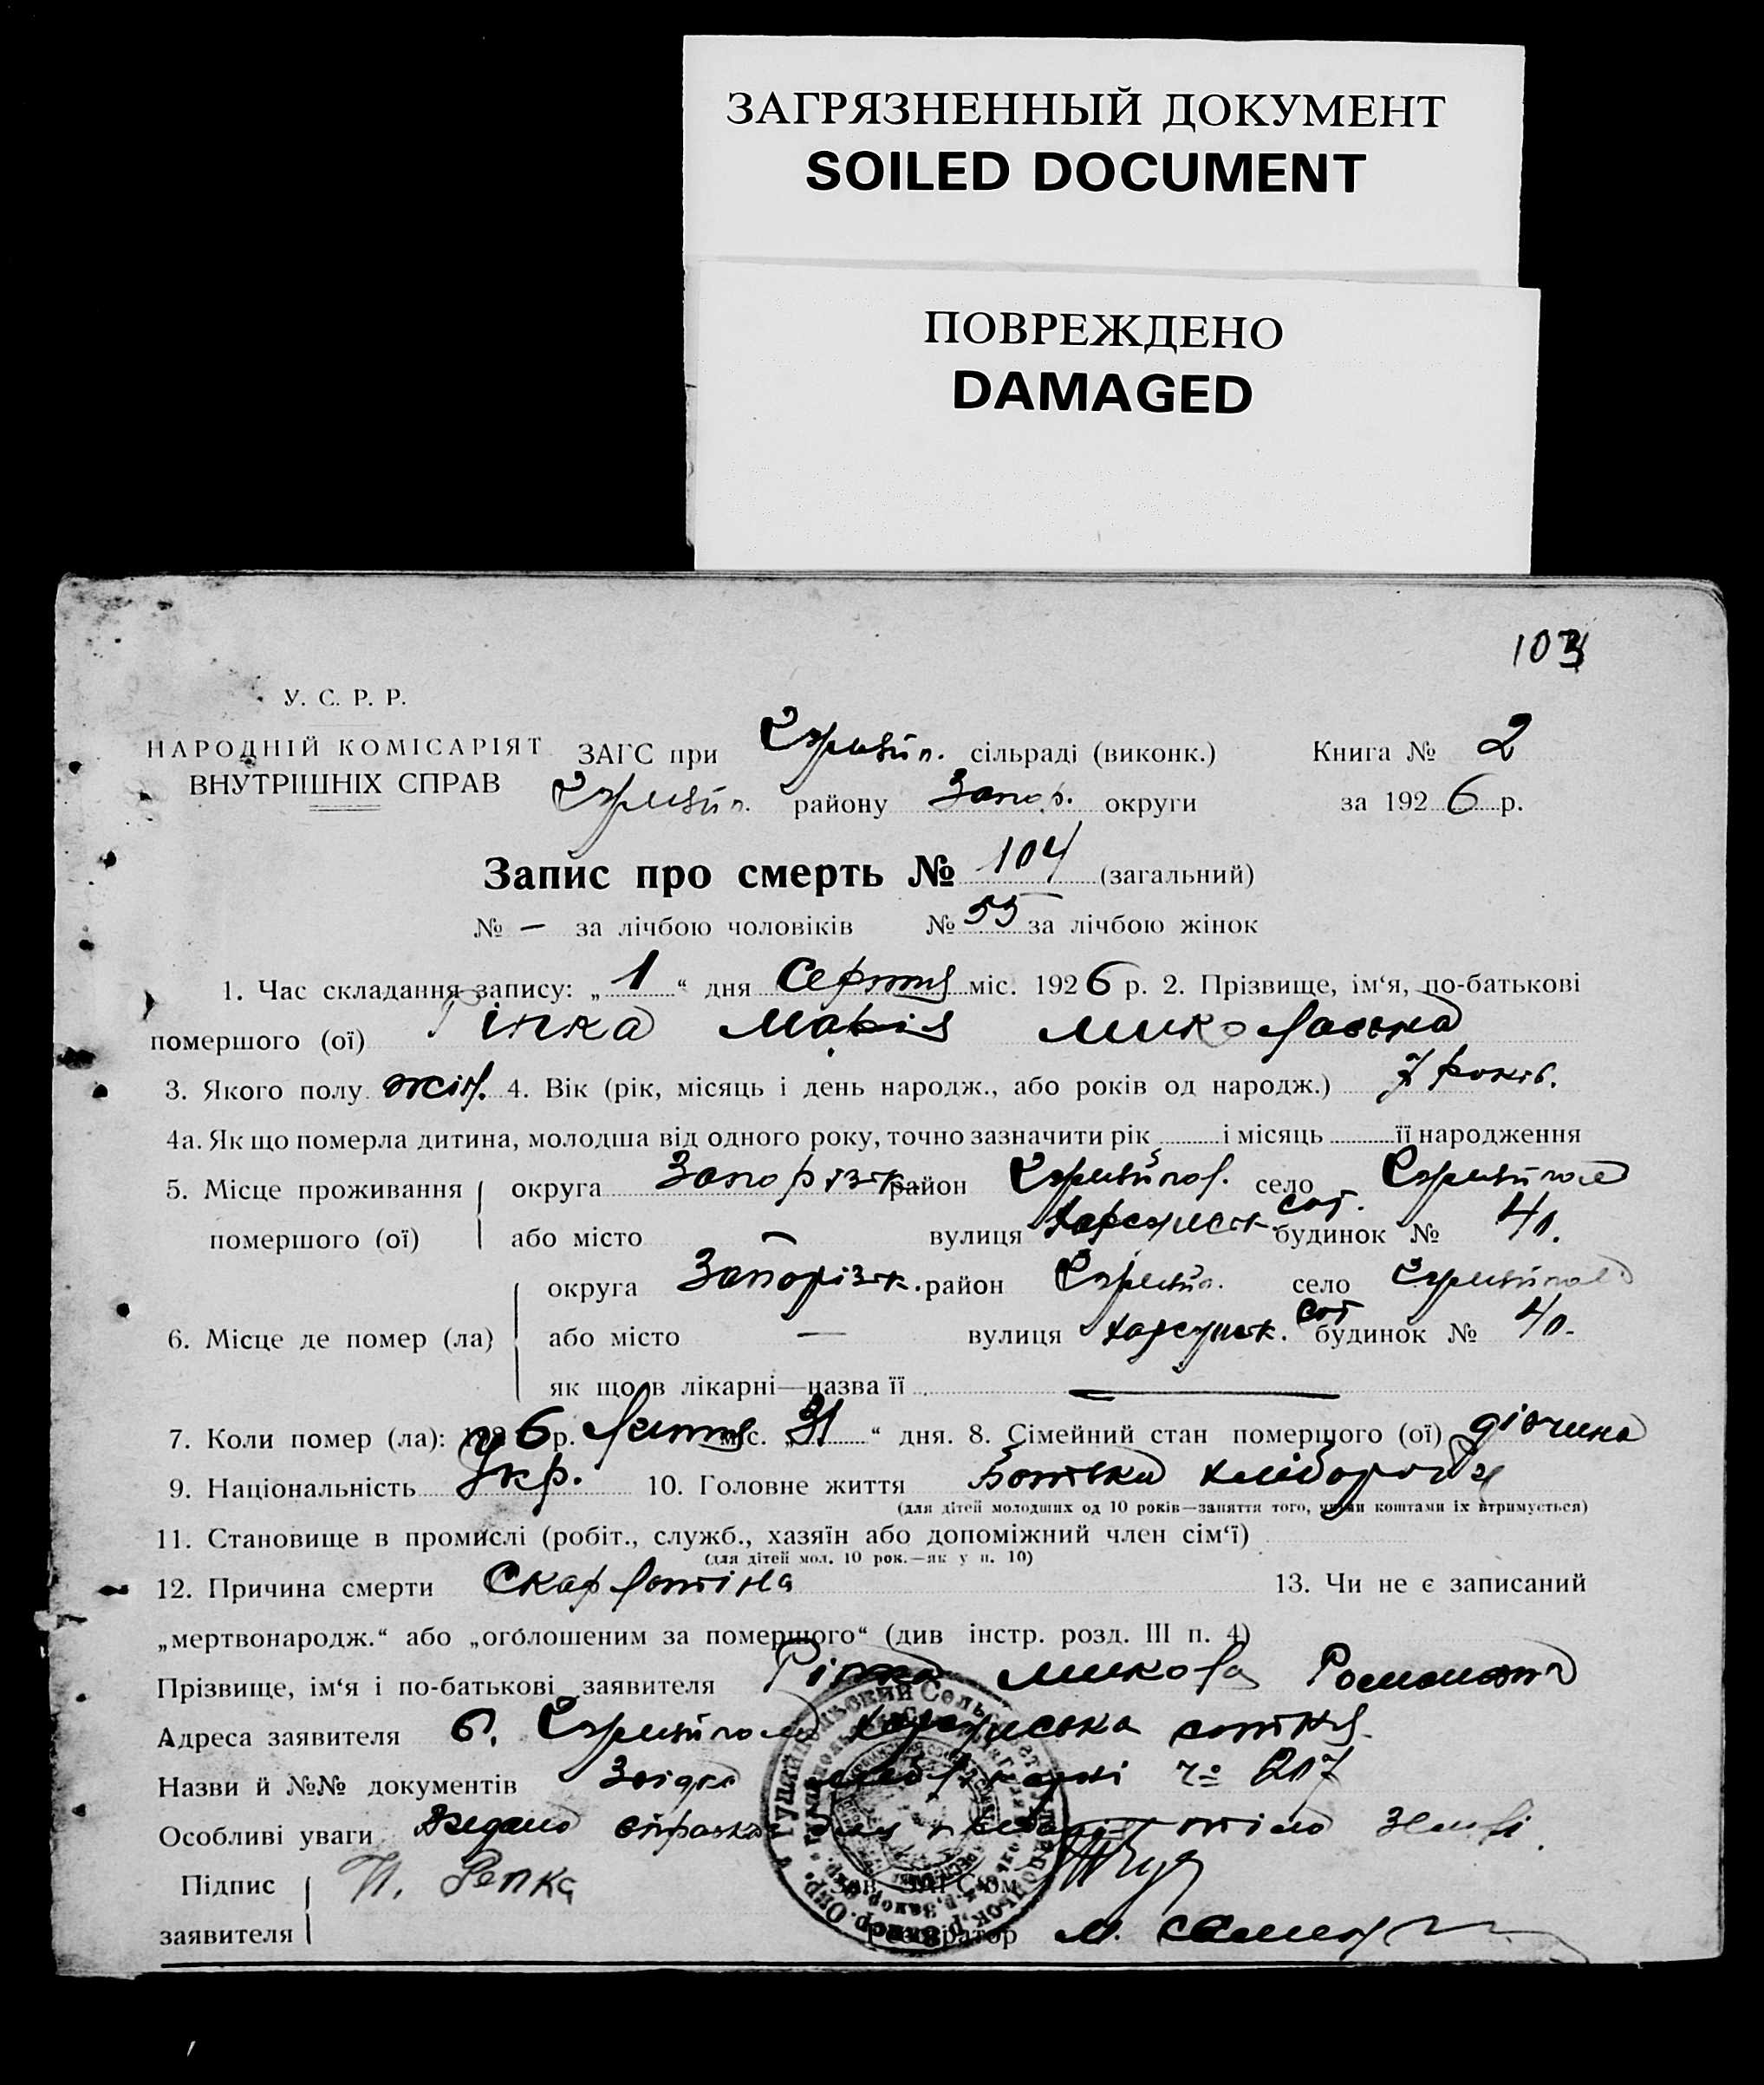 ЗАГРЯЗНЕННЫЙ ДОКУМЕНТ
SOILED DOCUMENT
ПОВРЕЖДЕНО
DAMAGED
103
У. С. Р. Р.
НАРОДНІЙ КОМІСАРІЯТ ЗАГС при сільраді (виконк.) Книга № 2
ВНУТРІШНІХ СПРАВ району Запор. округи за 1926 р.
Запис про смерть № 104 (загальний)
№ — за лічбою чоловіків № 55 за лічбою жінок
1. Час складання запису: „1“ дня Серпня міс. 1926 р. 2. Прізвище, ім‘я, по-батькові
помершого (ої) Ріпка Марія Миколаєвна
3. Якого полу жін. 4. Вік (рік, місяць і день народж., або років од народж.) 7 років.
4а. Як що померла дитина, молодша від одного року, точно зазначити рік і місяць її народження
5. Місце проживання округа Запорізьк. район село
помершого (ої) або місто — вулиця сот. будинок № 40.
округа Запорізьк. район село
6. Місце де помер (ла) або місто — вулиця сот будинок № 40.
як що в лікарні—назва її —
7. Коли помер (ла): 1926 р. Липня міс. „31“ дня. 8. Сімейний стан помершого (ої) дівчина
9. Національність Укр. 10. Головне життя Батька хлібороба
(для дітей молодших од 10 років—заняття того, чиїми коштами їх втримується)
11. Становище в промислі (робіт., служб., хазяїн або допоміжний член сім‘ї)
(для дітей мол. 10 рок.—як у п. 10)
12. Причина смерти Скарлатіна 13. Чи не є записаний
„мертвонародж.“ або „оголошеним за помершого“ (див інстр. розд. III п. 4)
Прізвище, ім‘я і по-батькові заявителя Ріпка Микола
Адреса заявителя сотня.
Назви й №№ документів № 207
Особливі уваги Видано справка тіло землі.
Підпис Н. Репка Зав. ЗАГС‘ом
заявителя Реєстратор М.